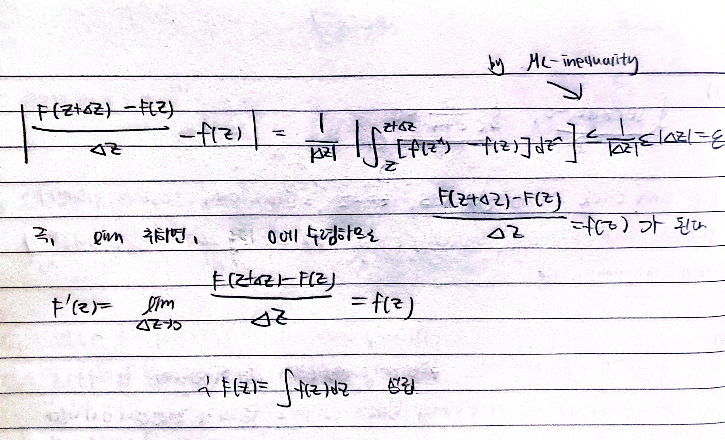 by ML-inequality
|F(z+Δz)-F(z)/Δz - f(z)| = 1/|Δz| |∫_z^{z+Δz} [f(z*) - f(z)]dz*| ≤ 1/|Δz| ε|Δz| = ε
즉, lim 취하면, 0에 수렴하므로 F(z+Δz)-F(z)/Δz = f(z) 가 된다
F'(z) = lim_{Δz→0} F(z+Δz)-F(z)/Δz = f(z)
∴ F(z) = ∫f(z)dz 성립